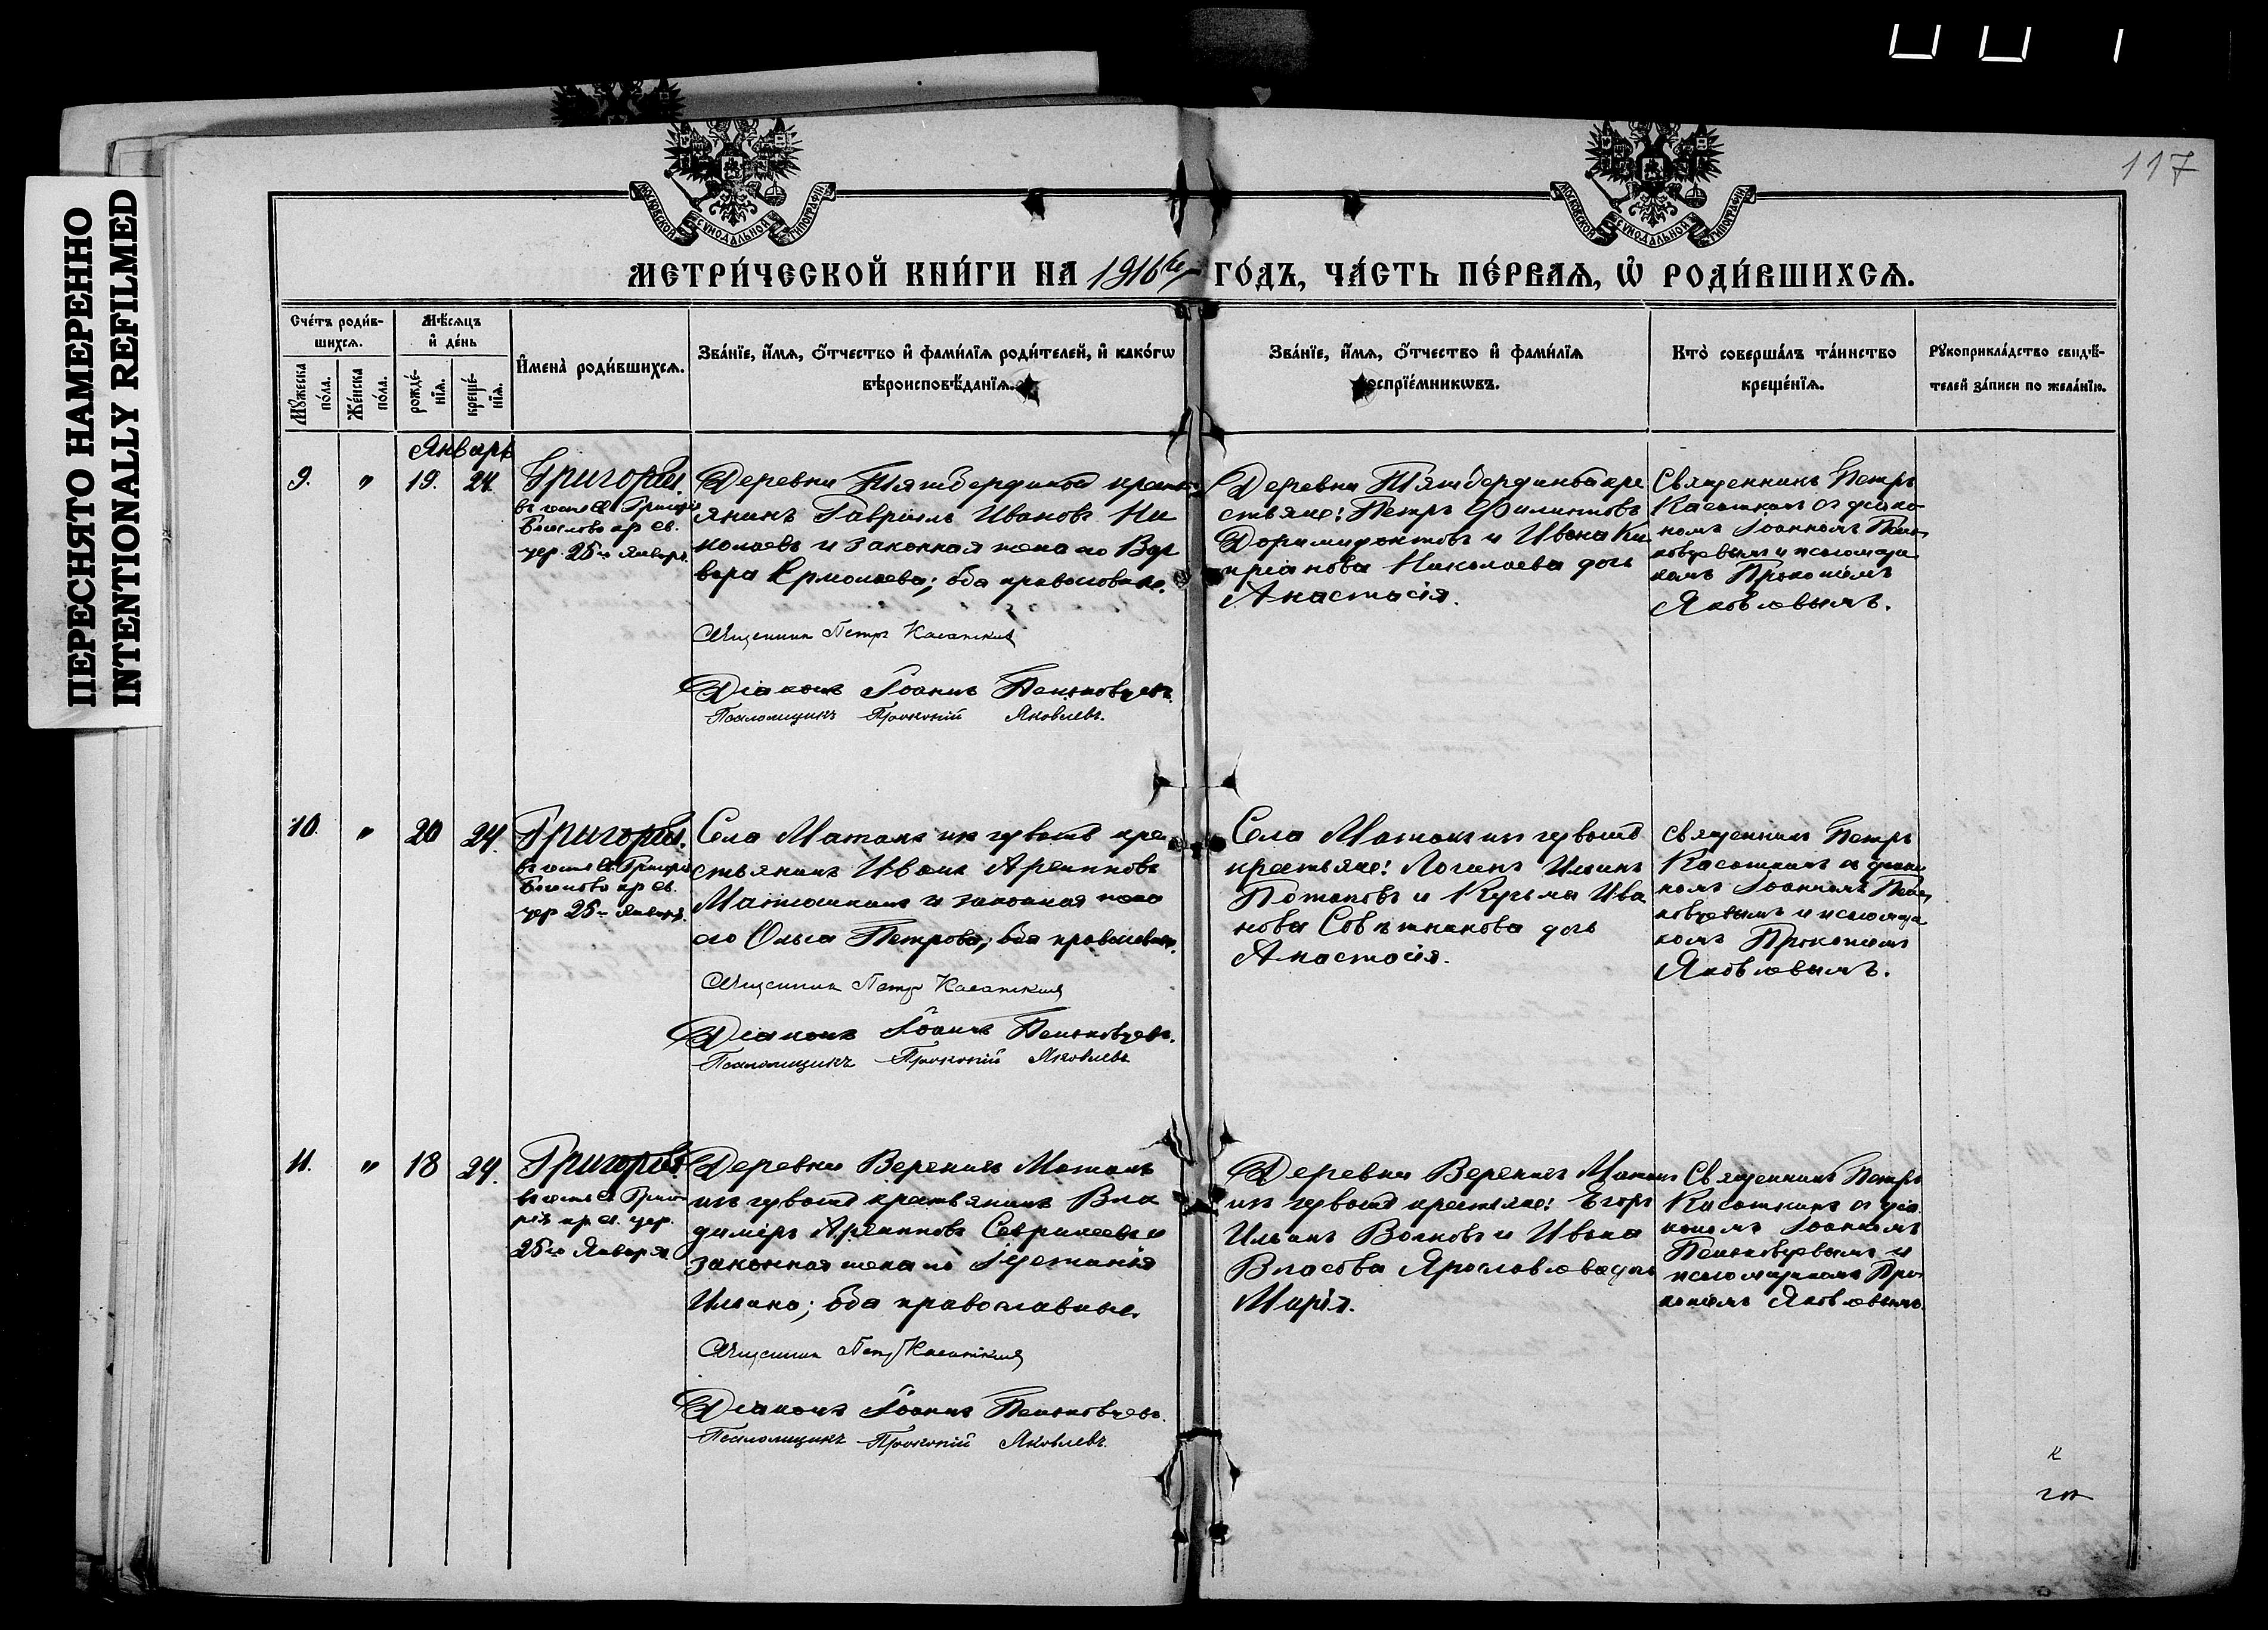 117
ПЕРЕСНЯТО НАМЕРЕННО
INTENTIONALLY REFILMED
МОСКОВСКОЙ СѴНОДАЛЬНОЙ ТИПОГРАФІИ
МОСКОВСКОЙ СѴНОДАЛЬНОЙ ТИПОГРАФІИ
МЕТРИ́ЧЕСКОЙ КНИ́ГИ НА 1916 ГО́ДЪ, ЧА́СТЬ ПЕ́РВАѦ, Ѡ РОДИ́ВШИХСѦ.
Сче́тъ роди́в-
шихсѧ.
Мѣ́сѧцъ
и́ де́нь
Мꙋ́жеска
по́ла.
Же́нска
по́ла.
рожде́-
нїѧ.
креще́-
нїѧ.
И҆мена̀ роди́вшихсѧ.
Зва́нїе, и҆́мѧ, ѻ҆́тчество и҆ фами́лїѧ роди́телей, и҆ како́гѡ
вѣроисповѣ́данїѧ.
Зва́нїе, и҆́мѧ, ѻ҆́тчество и҆ фами́лїѧ
оспрїе́мникѡвъ.
Кто̀ соверша́лъ та́инство
креще́нїѧ.
Рꙋкоприкла́дство свидѣ́-
телей за́писи по жела́нїю.
Январь
9. " 19. 24. Григорій.
въ честь св. Григорія
Богослова пр. св.
цер. 25го Января.
Деревни крестья
янинъ Гавріилъ Ивановъ Ни
колаевъ и законная жена его Вар
вара Ермолаева; оба православные.
Священникъ Петръ Касаткинъ
Діаконъ Іоаннъ Пеньковцевъ.
Псаломщикъ Прокопій Яковлевъ.
Деревни кре
стьяне: Петръ Филипповъ
Доримидонтовъ и Ивана Ки
пріанова Николаева дочь
Анастасія.
Священникъ Петръ
Касаткинъ съ діако
номъ Іоанномъ Пень
ковцевымъ и псаломщи
комъ Прокопіемъ
Яковлевымъ.
10. " 20 24. Григорій.
въ честь св. Григорія
Богослова пр. св.
цер. 25го Января.
Села Матакъ изъ чувашъ кре
стьянинъ Иванъ Архиповъ
и законная жена
его Ольга Петрова; оба православные.
Священникъ Петръ Касаткинъ
Діаконъ Іоаннъ Пеньковцевъ.
Псаломщикъ Прокопій Яковлевъ
Села Матакъ изъ чувашъ
крестьяне: Логинъ Ильинъ
Потаповъ и Кузьмы Ива
нова Совѣтникова дочь
Анастасія.
Священникъ Петръ
Касаткинъ съ діако
номъ Іоанномъ Пень
ковцевымъ и псаломщи
комъ Прокопіемъ
Яковлевымъ.
11. " 18 24. Григорій
въ честь св. Григо
рія пр. св. цер.
25го Января
Деревни Верхнихъ Матакъ
изъ чувашъ крестьянинъ Вла
диміръ Архиповъ и
законная жена его Іустинія
Ильина; оба православные.
Священникъ Петръ Касаткинъ
Діаконъ Іоаннъ Пеньковцевъ.
Псаломщикъ Прокопій Яковлевъ.
Деревни Верхнихъ Матакъ
изъ чувашъ крестьяне: Егоръ
Ильинъ Волковъ и Ивана
Власова Ярославлева дочь
Марія.
Священникъ Петръ
Касаткинъ съ діа
кономъ Іоанномъ
Пеньковцевымъ и
псаломщикомъ Про
копіемъ Яковлевымъ.